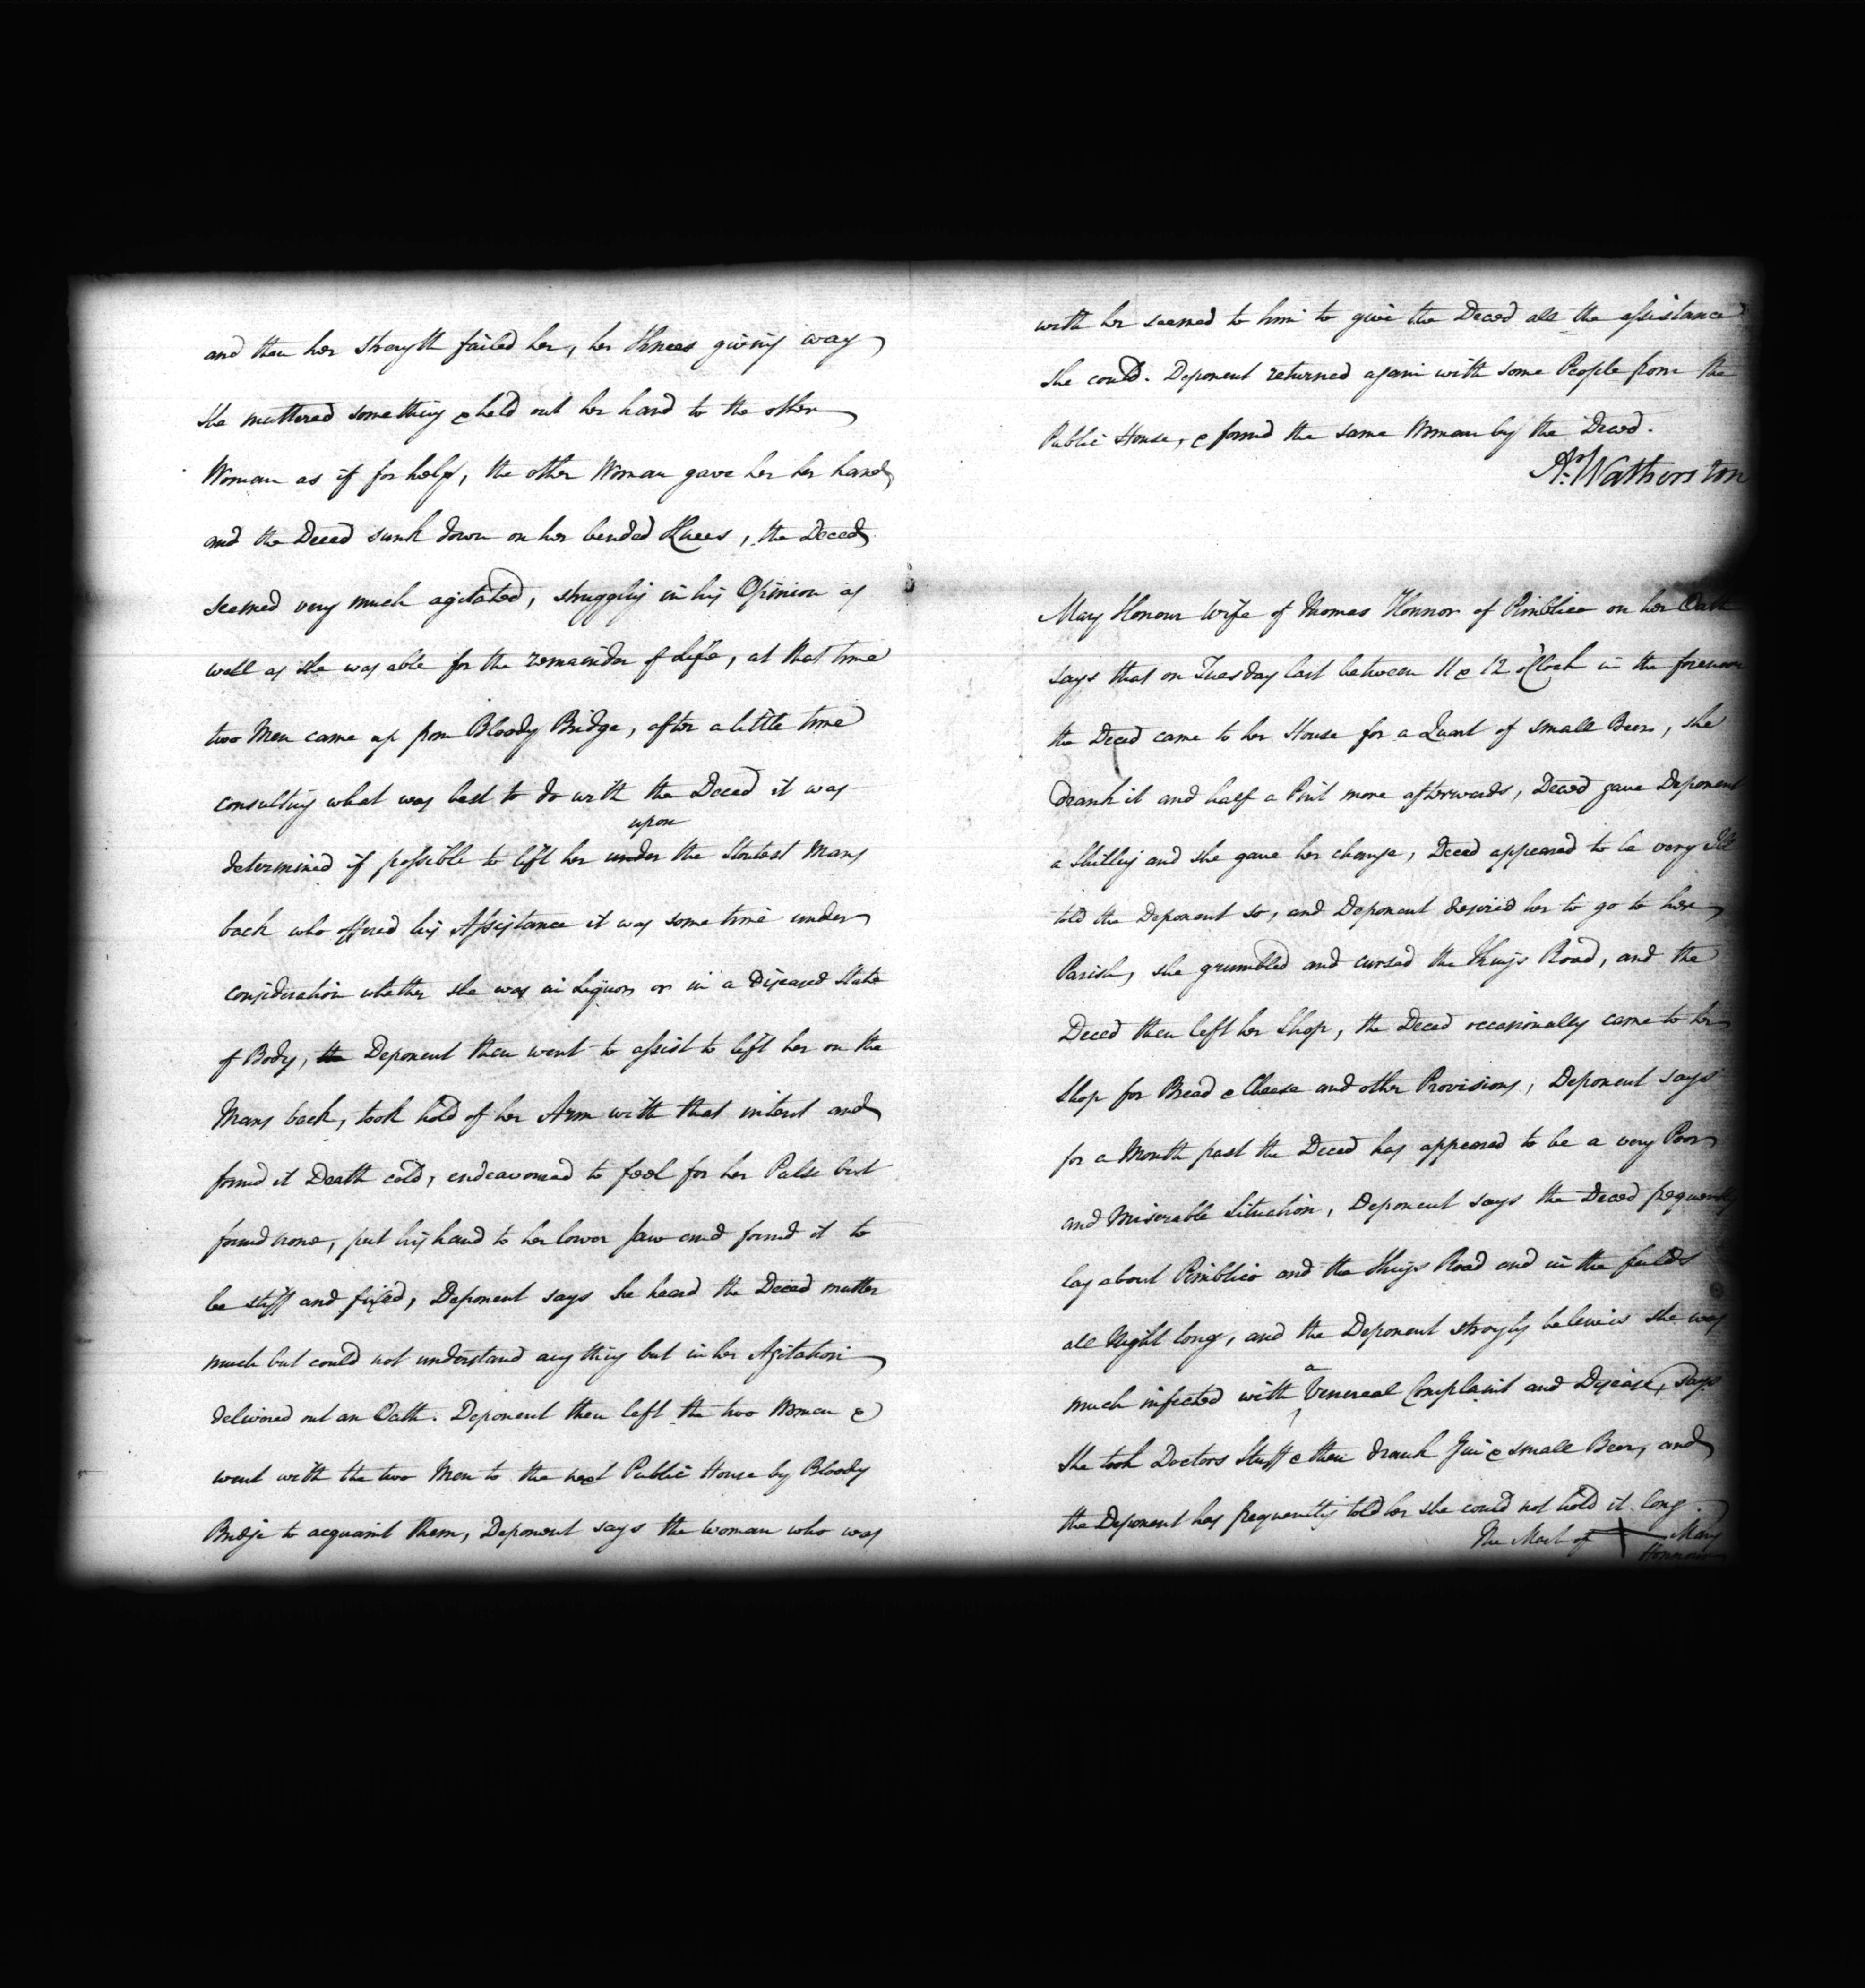 and then her strength failed her, her Knees giving way
she muttered something & held out her hand to the other
Woman as if for help, the other Woman gave her her hand
and the Deced sunk down on her bended Knees, the Deced
seemed very much agitated, struggling in his Opinion as
well as she was able for the remainder of Life, at that time
two Men came up from Bloody Bridge, after a little time
consulting what was best to do with the Deced it was
upon
determined if possible to lift her under the Stoutest Mans
back who offered his Assistance it was some time under
consideration whether she was in Liquor or in a Diseased State
of Body, the Deponent then went to assist to lift her on the
Mans back, took hold of her Arm with that intent and
found it Death cold, endeavoured to feel for her Pulse but
found none, put his hand to her lower Jaw and found it to
be stiff and fixed, Deponent says he heard the Deced mutter
much but could not understand any thing but in her Agitation
delivered out an Oath. Deponent then left the two Women &
went with the two Men to the next Public House by Bloody
Bridge to acquaint them, Deponent says the woman who was
with her seemed to him to give the Deced all the assistance
she could. Deponent returned again with some People from the
Public House, & found the same Woman by the Deced.
Ar. Watherston
Mary Honour Wife of Thomas Honnor of Pimblico on her Oath
says that on Tuesday last between 11 & 12 o'Clock in the forenoon
the Deced came to her House for a Quart of small Beer, she
drank it and half a Pint more afterwards, Deced gave Deponent
a Shilling and she gave her change, Deced appeared to be very Ill
told the Deponent so, and Deponent desired her to go to her
Parish, she grumbled and cursed the Kings Road, and the
Deced then left her Shop, the Deced occasionally came to her
Shop for Bread & Cheese and other Provisions, Deponent says
for a Month past the Deced has appeared to be a very Poor
and Miserable Situation, Deponent says the Deced frequently
lay about Pimblico and the Kings Road and in the feilds
all Night long, and the Deponent strongly beleives she was
a
much infected with Venereal Complaint and Disease, says
She took Doctors Stuff & then drank Gin & small Beer, and
the Deponent has frequently told her she could not hold it long.
The Mark of Mary
Honnour